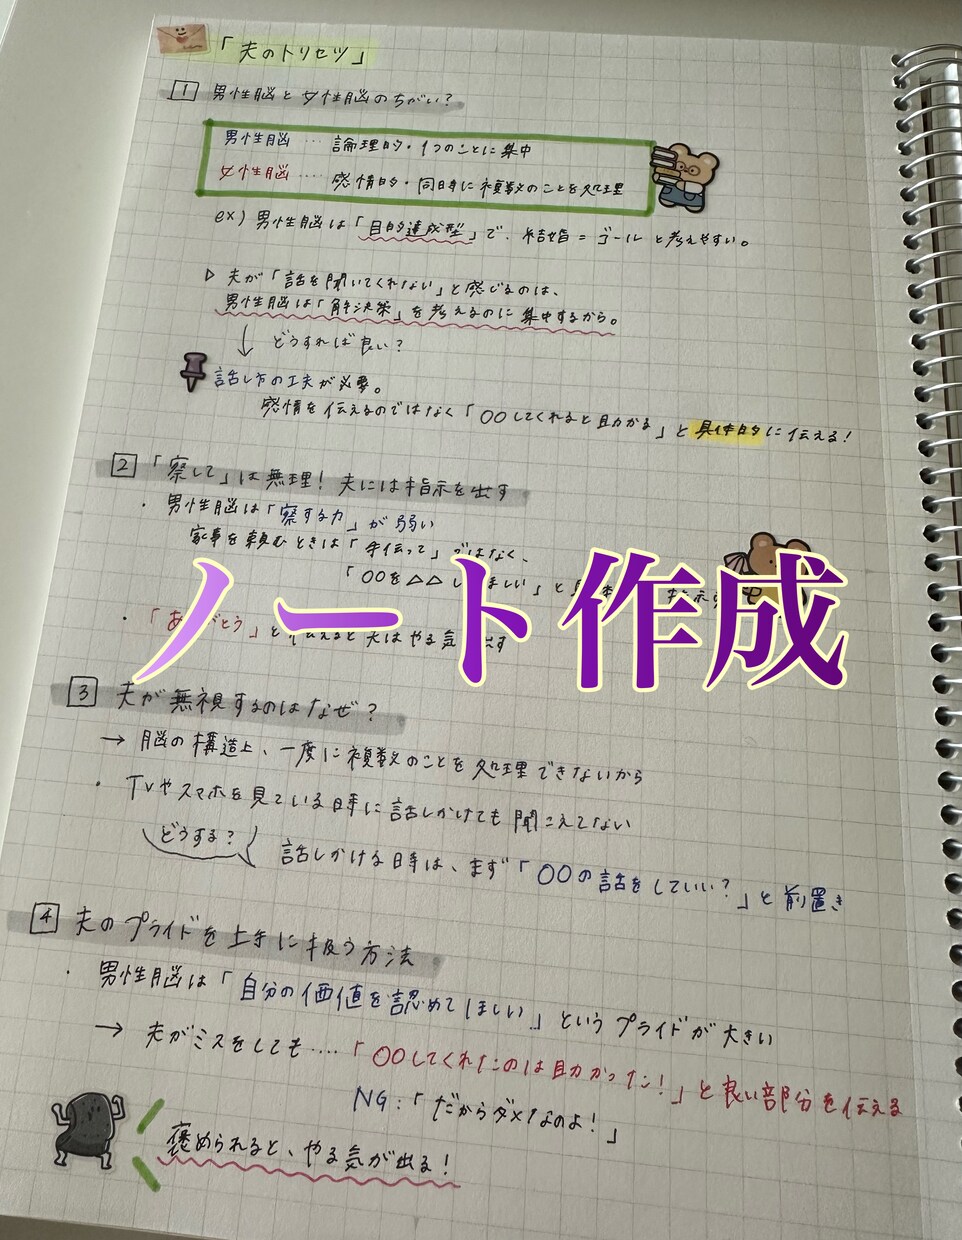 「夫のトリセツ」
1 男性脳と女性脳のちがい?
男性脳 … 論理的・1つのことに集中
女性脳 …… 感情的・同時に複数のことを処理
ex) 男性脳は「目的達成型」で、結婚=ゴールと考えやすい。
▷ 夫が「話を聞いてくれない」と感じるのは、
男性脳は「解決策」を考えるのに集中するから。
↓ どうすれば良い?
話し方の工夫が必要。
感情を伝えるのではなく「〇〇してくれると助かる」と具体的に伝える!
2 「察して」は無理! 夫には指示を出す
・男性脳は「察する力」が弱い
家事を頼むときは「手伝って」ではなく、
「〇〇を△△し ほしい」と
ノート作成
・「あ がとう」と伝えると夫はやる気 出す
3 夫が無視するのはなぜ?
→ 脳の構造上、一度に複数のことを処理できないから
・TVやスマホを見ている時に話しかけても聞こえてない
どうする? 話しかける時は、まず「〇〇の話をしていい?」と前置き
4 夫のプライドを上手に扱う方法
・男性脳は「自分の価値を認めてほしい」というプライドが大きい
→ 夫がミスをしても…. 「〇〇してくれたのは助かった!」と良い部分を伝える
NG:「だからダメなのよ!」
褒められると、やる気が出る!